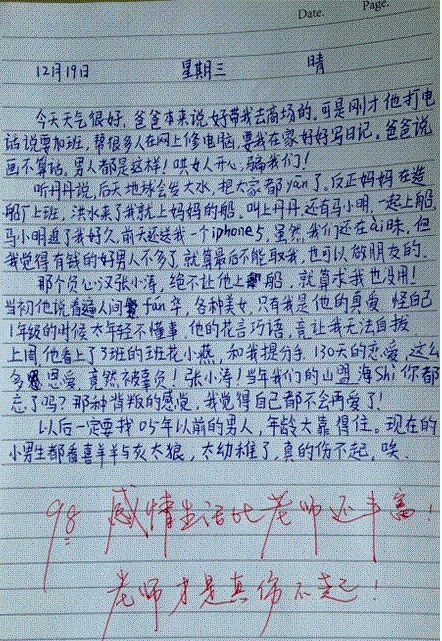 Date. Page.
12月19日 星期三 晴
今天天气很好,爸爸本来说好带我去商场的,可是刚才他打电
话说要加班,帮很多人在网上修电脑,要我在家好好写日记。爸爸说
画不算话,男人都是这样!哄女人开心,骗我们!
听丹丹说,后天地球会发大水,把大家都yān了,反正妈妈在造
船厂上班,洪水来了我就上妈妈的船,叫上丹丹,还有马小明,一起上船,
马小明追了我好久,前天还送我一个iphone5,虽然我们还在ài昧,但
我觉得有钱的好男人不多了,就算最后不能取我,也可以做朋友的。
那个负心汉张小涛,绝不让他上船,就算求我也没用!
当初他说看遍人间fán华,各种美女,只有我是他的真爱,怪自己
1年级的时候太年轻不懂事,他的花言巧语,竟让我无法自拔
上周他看上了3班的班花小燕,和我提分手,130天的恋爱,这么
多恩爱,竟然被辜负!张小涛!当年我们的山盟海Shi你都
忘了吗?那种背叛的感觉,我觉得自己都不会再爱了!
以后一定要找05年以前的男人,年龄大靠得住。现在的
小男生都看喜羊羊与灰太狼,太幼稚了,真的伤不起,唉.
98 感情生活比老师还丰富!
老师才是真伤不起!